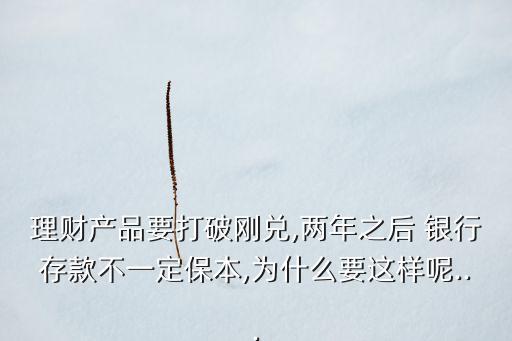 理财产品要打破刚兑,两年之后 银行
存款不一定保本,为什么要这样呢..
.